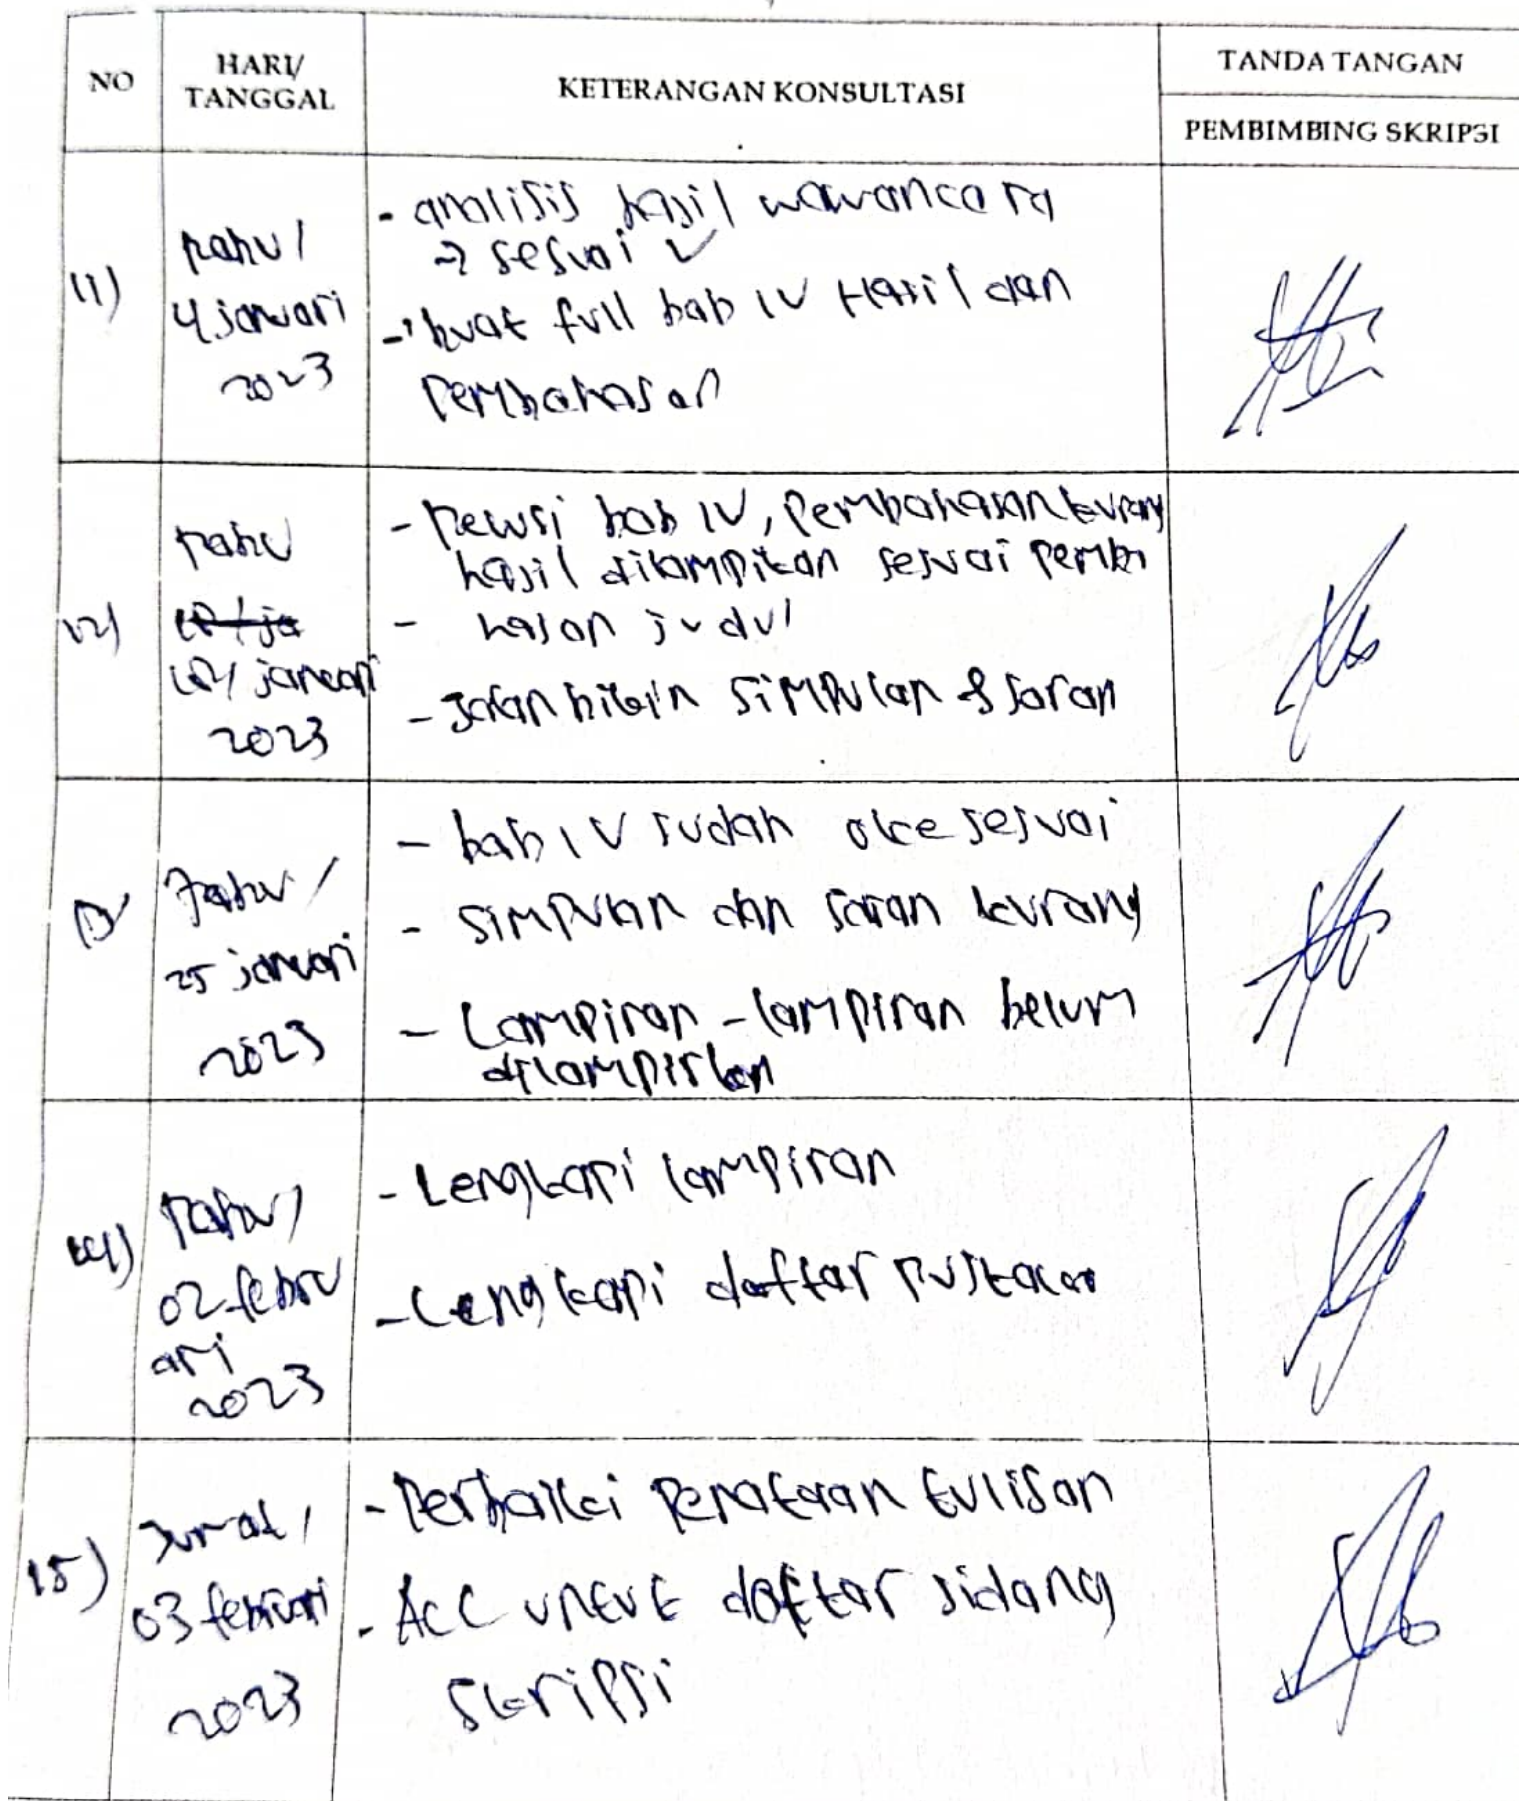 NO
HARI/
TANGGAL
KETERANGAN KONSULTASI
TANDA TANGAN
PEMBIMBING SKRIPSI
11)
Rabu/
4 januari
2023
- analisis hasil wawancara
→ sesuai ✓
- buat full bab IV Hasil dan
Pembahasan
12)
Rabu
januari
2023
- Revisi bab IV, Pembahasan kurang
hasil dilampirkan sesuai pemba
- hasan judul
- simpulan & saran
13)
Rabu/
25 januari
2023
- bab IV sudah oke sesuai
- simpulan dan saran kurang
- Lampiran-lampiran belum
dilampirkan
14)
Rabu/
02 febru
ari
2023
- Lengkapi lampiran
- Lengkapi daftar pustaka
15)
Jumat/
03 februari
2023
- Perbaiki penataan tulisan
- ACC untuk daftar sidang
skripsi